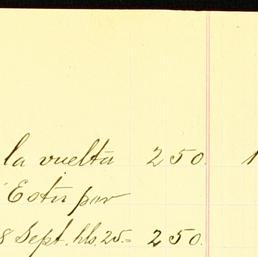 la vuelta 250. 1
Estu por
8 Sept. hls. 25.= 250.